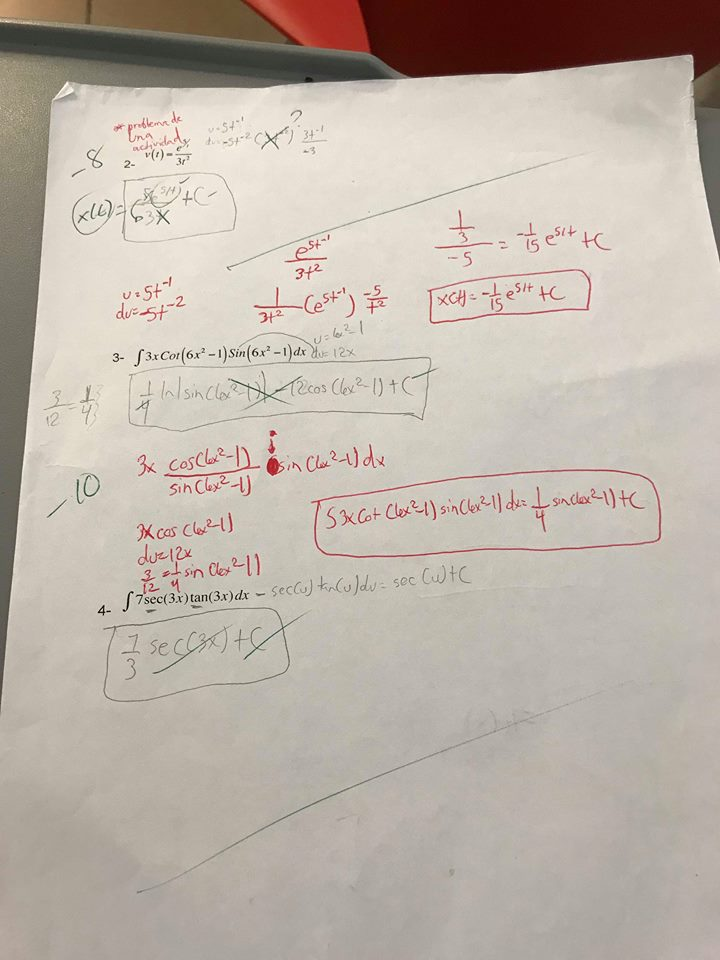 problema de
una
actividad
u=5t⁻¹
du=-5t⁻²
?
3t⁻¹
-3
-8
2- v(t)=e^(5/t)/3t²
x(t)= +C
e^(5t⁻¹)
3t²
1/3
-5
= -1/15 e^(5/t) +C
u=5t⁻¹
du=-5t⁻²
1/3t² (e^(5t⁻¹)) -5/t²
x(t)= -1/15 e^(5/t) +C
3- ∫3xCot(6x²-1)Sin(6x²-1)dx
u=6x²-1
du=12x
3/12
1/4 ln|sin(6x²-1)| - 12cos(6x²-1)+C
-10
3x cos(6x²-1)/sin(6x²-1) · sin(6x²-1) dx
3x cos(6x²-1)
du=12x
3/12 = 1/4 sin(6x²-1)
∫3xCot(6x²-1)sin(6x²-1)dx = 1/4 sin(6x²-1)+C
4- ∫7sec(3x)tan(3x)dx - sec(u)tan(u)du = sec(u)+C
7/3 sec(3x)+C